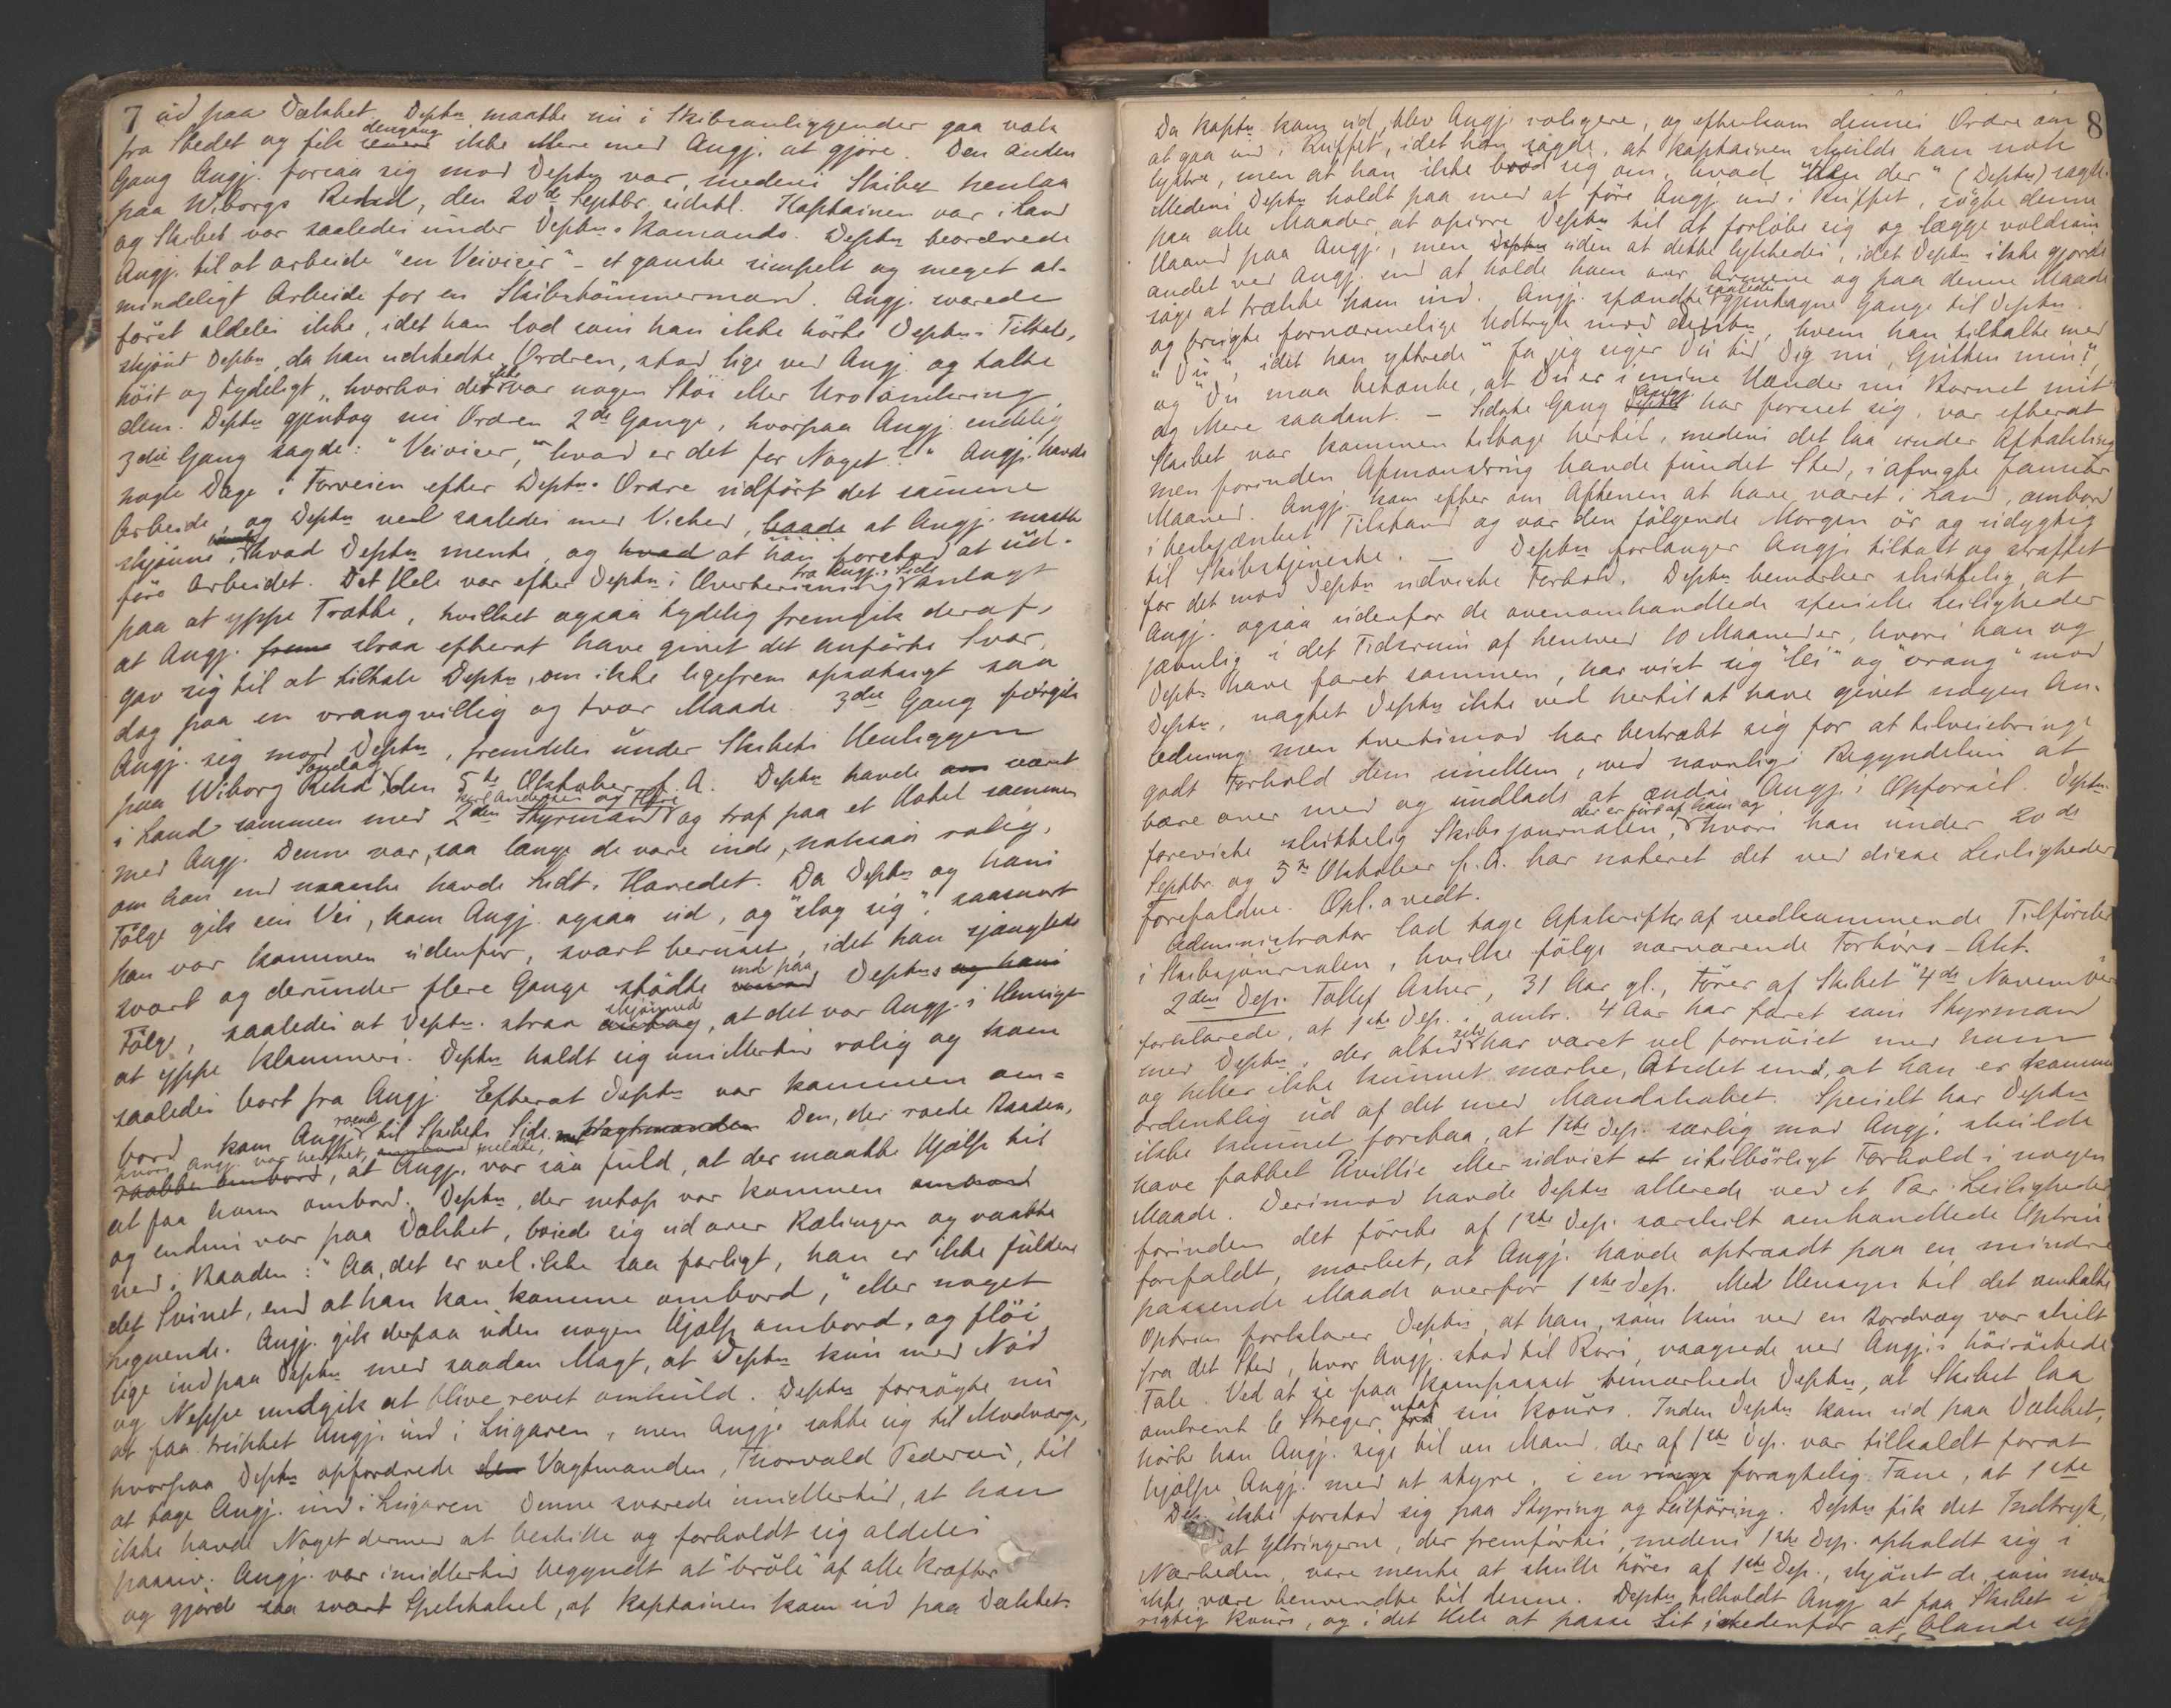 7
ud paa Dækket. Deptn maatte nu i Skibsanliggender gaa væk
fra Stedet og fik dengang ikke Mere med Angj. at gjøre. Den anden
Gang Angj. forsaa sig mod Deptn var, medens Skibet henlaa
paa Wiborgs Rehd, den 20de Septbr. sidstl. Kaptainen var i Land
og Skibet var saaledes under Deptns Komando. Deptn beordrede
Angj. til at arbeide "en Veiviser" - et ganske simpelt og meget al-
mindeligt Arbeide for en Skibstømmermand. Angj. svarede
først aldeles ikke, idet han lod som han ikke hørte Deptns Tiltale,
skjønt Deptn, da han udstedte Ordren, stod lige ved Angj. og talte
höit og tydeligt, hvorhos der ikke var nogen Stöi eller Uro omkring
dem. Deptn gjentog nu Ordren 2de Gange, hvorpaa Angj. endelig
3die Gang sagde: "Veiviser," "hvad er det for Noget?" Angj. havde
nogle Dage i Forveien efter Deptns Ordre udført det samme
Arbeide, og Deptn ved saaledes med Vished, baade at Angj. maatte
skjønne, hvad Deptn mente, og at han forstod at ud-
føre Arbeidet. Det Hele var efter Deptns Overbevisning fra Angj.s Side anlagt
paa at yppe Trætte, hvilket ogsaa tydelig fremgik deraf,
at Angj. strax efterat have givet det anførte Svar,
gav sig til at tiltale Deptn, om ikke ligefrem opsætsigt saa
dog paa en vrangvillig og tvær Maade. 3die Gang forgik
Angj. sig mod Deptn, fremdeles under Skibets Henliggen
paa Wiborg Rehd, Søndag den 5te Oktober f. A. Deptn havde været
i Land sammen med 2den Styrmand Karl Andersen og Flere og traf paa et Hotel sammen
med Angj. Denne var, saa længe de vare inde, noksaa rolig,
om han end maaske havde Lidt i Hovedet. Da Deptn og hans
Følge gik sin Vei, kom Angj. ogsaa ud, og "slog sig", saasnart
han var kommen udenfor, svært beruset, idet han sjanglede
svært og derunder flere Gange stødte ind paa Deptns
Følge, saaledes at Deptn. strax skjønnede, at det var Angj.s Hensigt
at yppe Klammeri. Deptn holdt sig imidlertid rolig og kom
saaledes bort fra Angj. Efterat Deptn var kommen om-
bord kom Angj. roende til Skibets Side. Den, der roede Baaden,
hvori Angj. var hentet, meldte, at Angj. var saa fuld, at der maatte Hjælp til
at faa ham ombord. Deptn, der netop var kommen ombord
og endnu var paa Dækket, bøiede sig ud over Rælingen og raabte
ned i Baaden: "Aa, det er vel ikke saa farligt, han er ikke fuldere
det Svinet, end at han kan komme ombord," eller noget
lignende. Angj. gik derpaa uden nogen Hjælp ombord, og fløi
lige ind paa Deptn med saadan Magt, at Deptn kun med Nød
og Neppe undgik at blive revet omkuld. Deptn forsøgte nu
at faa trukket Angj. ind i Lugaren, men Angj. satte sig til Modværge,
hvorpaa Deptn opfordrede Vagtmanden, Thorvald Pedersen, til
at tage Angj. ind i Lugaren. Denne svarede imidlertid, at han
ikke havde Noget dermed at bestille og forholdt sig aldeles
passiv. Angj. var imidlertid begyndt at "brøle" af alle Kræfter
og gjorde saa svært Spektakel, at Kaptainen kom ud paa Dækket.
8
Da Kaptn kom ud, blev Angj. roligere, og efterkom dennes Ordre om
at gaa ind i Ruffet, idet han sagde, at Kaptainen skulde han nok
lystre, men at han ikke brød sig om, hvad "Han der" (Deptn) sagde.
Medens Deptn holdt paa med at føre Angj. ind i Ruffet, søgte denne
paa alle Maader at opirre Deptn til at forløbe sig og lægge voldsom
Haand paa Angj., men uden at dette lykkedes, idet Deptn ikke gjorde
andet ved Angj. end at holde ham over Armene og paa denne Maade
søge at trække ham ind. Angj. spændte saaledes gjentagne Gange til Deptn
og brugte fornærmelige Udtryk mod Deptn, hvem han tiltalte med
"Du", idet han yttrede "Ja jeg siger Du til Dig nu, Gutten min!"
og "Du maa betænke, at Du er i mine Hænder nu Barnet mit"
og Mere saadant. - Sidste Gang Angj. har forseet sig, var efterat
Skibet var kommen tilbage hertil, medens det laa under Aftakling
men forinden Afmønstring havde fundet Sted, i afvigte Januar
Maaned. Angj. kom efter om Aftenen at have været i Land, ombord
i beskjænket Tilstand og var den følgende Morgen ör og udygtig
til Skibstjeneste. - Deptn forlanger Angj. tiltalt og straffet
for det mod Deptn udviste Forhold. Deptn bemærker sluttelig, at
Angj. ogsaa udenfor de ovenomhandlede specielle Leiligheder
jævnlig i det Tidsrum af henved 10 Maaneder, hvori han og
Deptn have faret sammen, har vist sig "lei" og "vrang" mod
Deptn, uagtet Deptn ikke ved hertil at have givet nogen An-
ledning men tvertimod har bestræbt sig for at tilveiebringe
godt Forhold dem imellem, ved navnlig i Begyndelsen at
bære over med og undlade at ændse Angj.s Opførsel. Deptn
foreviste sluttelig Skibsjournalen, der er ført af ham og hvori han under 20de
Septbr. og 5te Oktober f. A. har noteret det ved disse Leiligheder
forefaldne. Opl. o vedt.
Administrator lod tage Afskrifter af vedkommende Tilførsler
i Skibsjournalen, hvilke følge nærværende Forhørs-Akt.
2den Dep. Tollef Asker, 31 Aar gl., Fører af Skibet "4de November"
forklarede, at 1ste Dep. i omtr. 4 Aar har faret som Styrmand
med Deptn, der altid selv har været vel fornøiet med ham
og heller ikke kunnet mærke, Andet end, at han er kommen
ordentlig ud af det med Mandskabet. Specielt har Deptn
ikke kunnet forstaa, at 1ste Dep. særlig mod Angj. skulde
have fattet Uvillie eller udvist utilbørligt Forhold i nogen
Maade. Derimod havde Deptn allerede ved et Par Leiligheder
forinden det første af 1ste Dep. særskilt omhandlede Optrin
forefaldt, mærket, at Angj. havde optraadt paa en mindre
passende Maade overfor 1ste Dep. Med Hensyn til det omtalte
Optrin forklarer Deptn, at han, som kun ved en Bordvæg var skilt
fra det Sted, hvor Angj. stod til Rors, vaagnede ved Angj.s höirøstede
Tale. Ved at se paa Kompasset bemærkede Deptn, at Skibet laa
omtrent 6 Streger ud af sin Kours. Inden Deptn kom ud paa Dækket,
hørte han Angj. sige til en Mand, der af 1ste Dep. var tilkaldt forat
hjælpe Angj. med at styre, i en foragtelig Tone, at 1ste
Dep. ikke forstod sig paa Styring og Seilføring. Deptn fik det Indtryk,
at Yttringerne, der fremførtes, medens 1ste Dep. opholdt sig i
Nærheden, vare mente at skulle høres af 1ste Dep., skjønt de, som nævnt
ikke vare henvendte til denne. Deptn tilholdt Angj. at faa Skibet i
rigtig Kours, og i det Hele at passe Sit istedenfor at blande sig